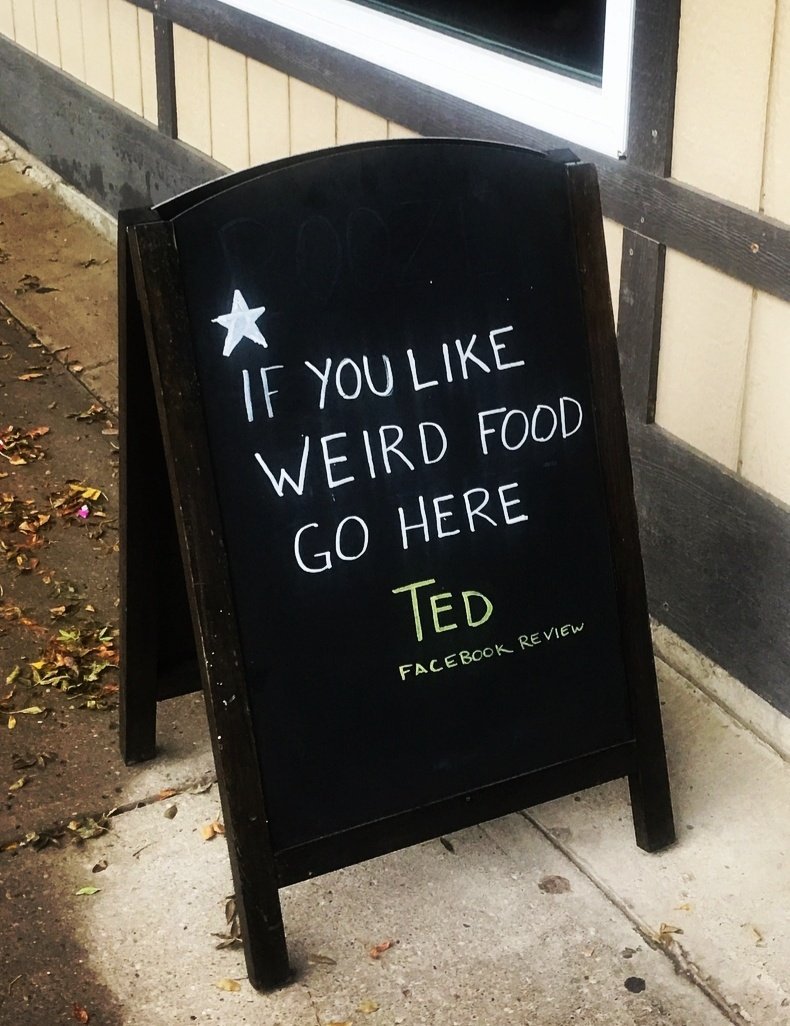 IF YOU LIKE
WEIRD FOOD
GO HERE
TED
FACEBOOK REVIEW